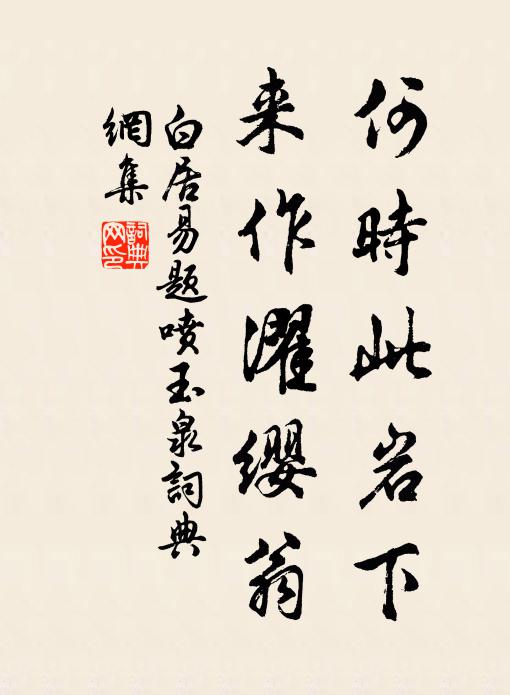 何時此岩下
来作濯缨翁
白居易題喷玉泉詞典
網集
詞典
网印